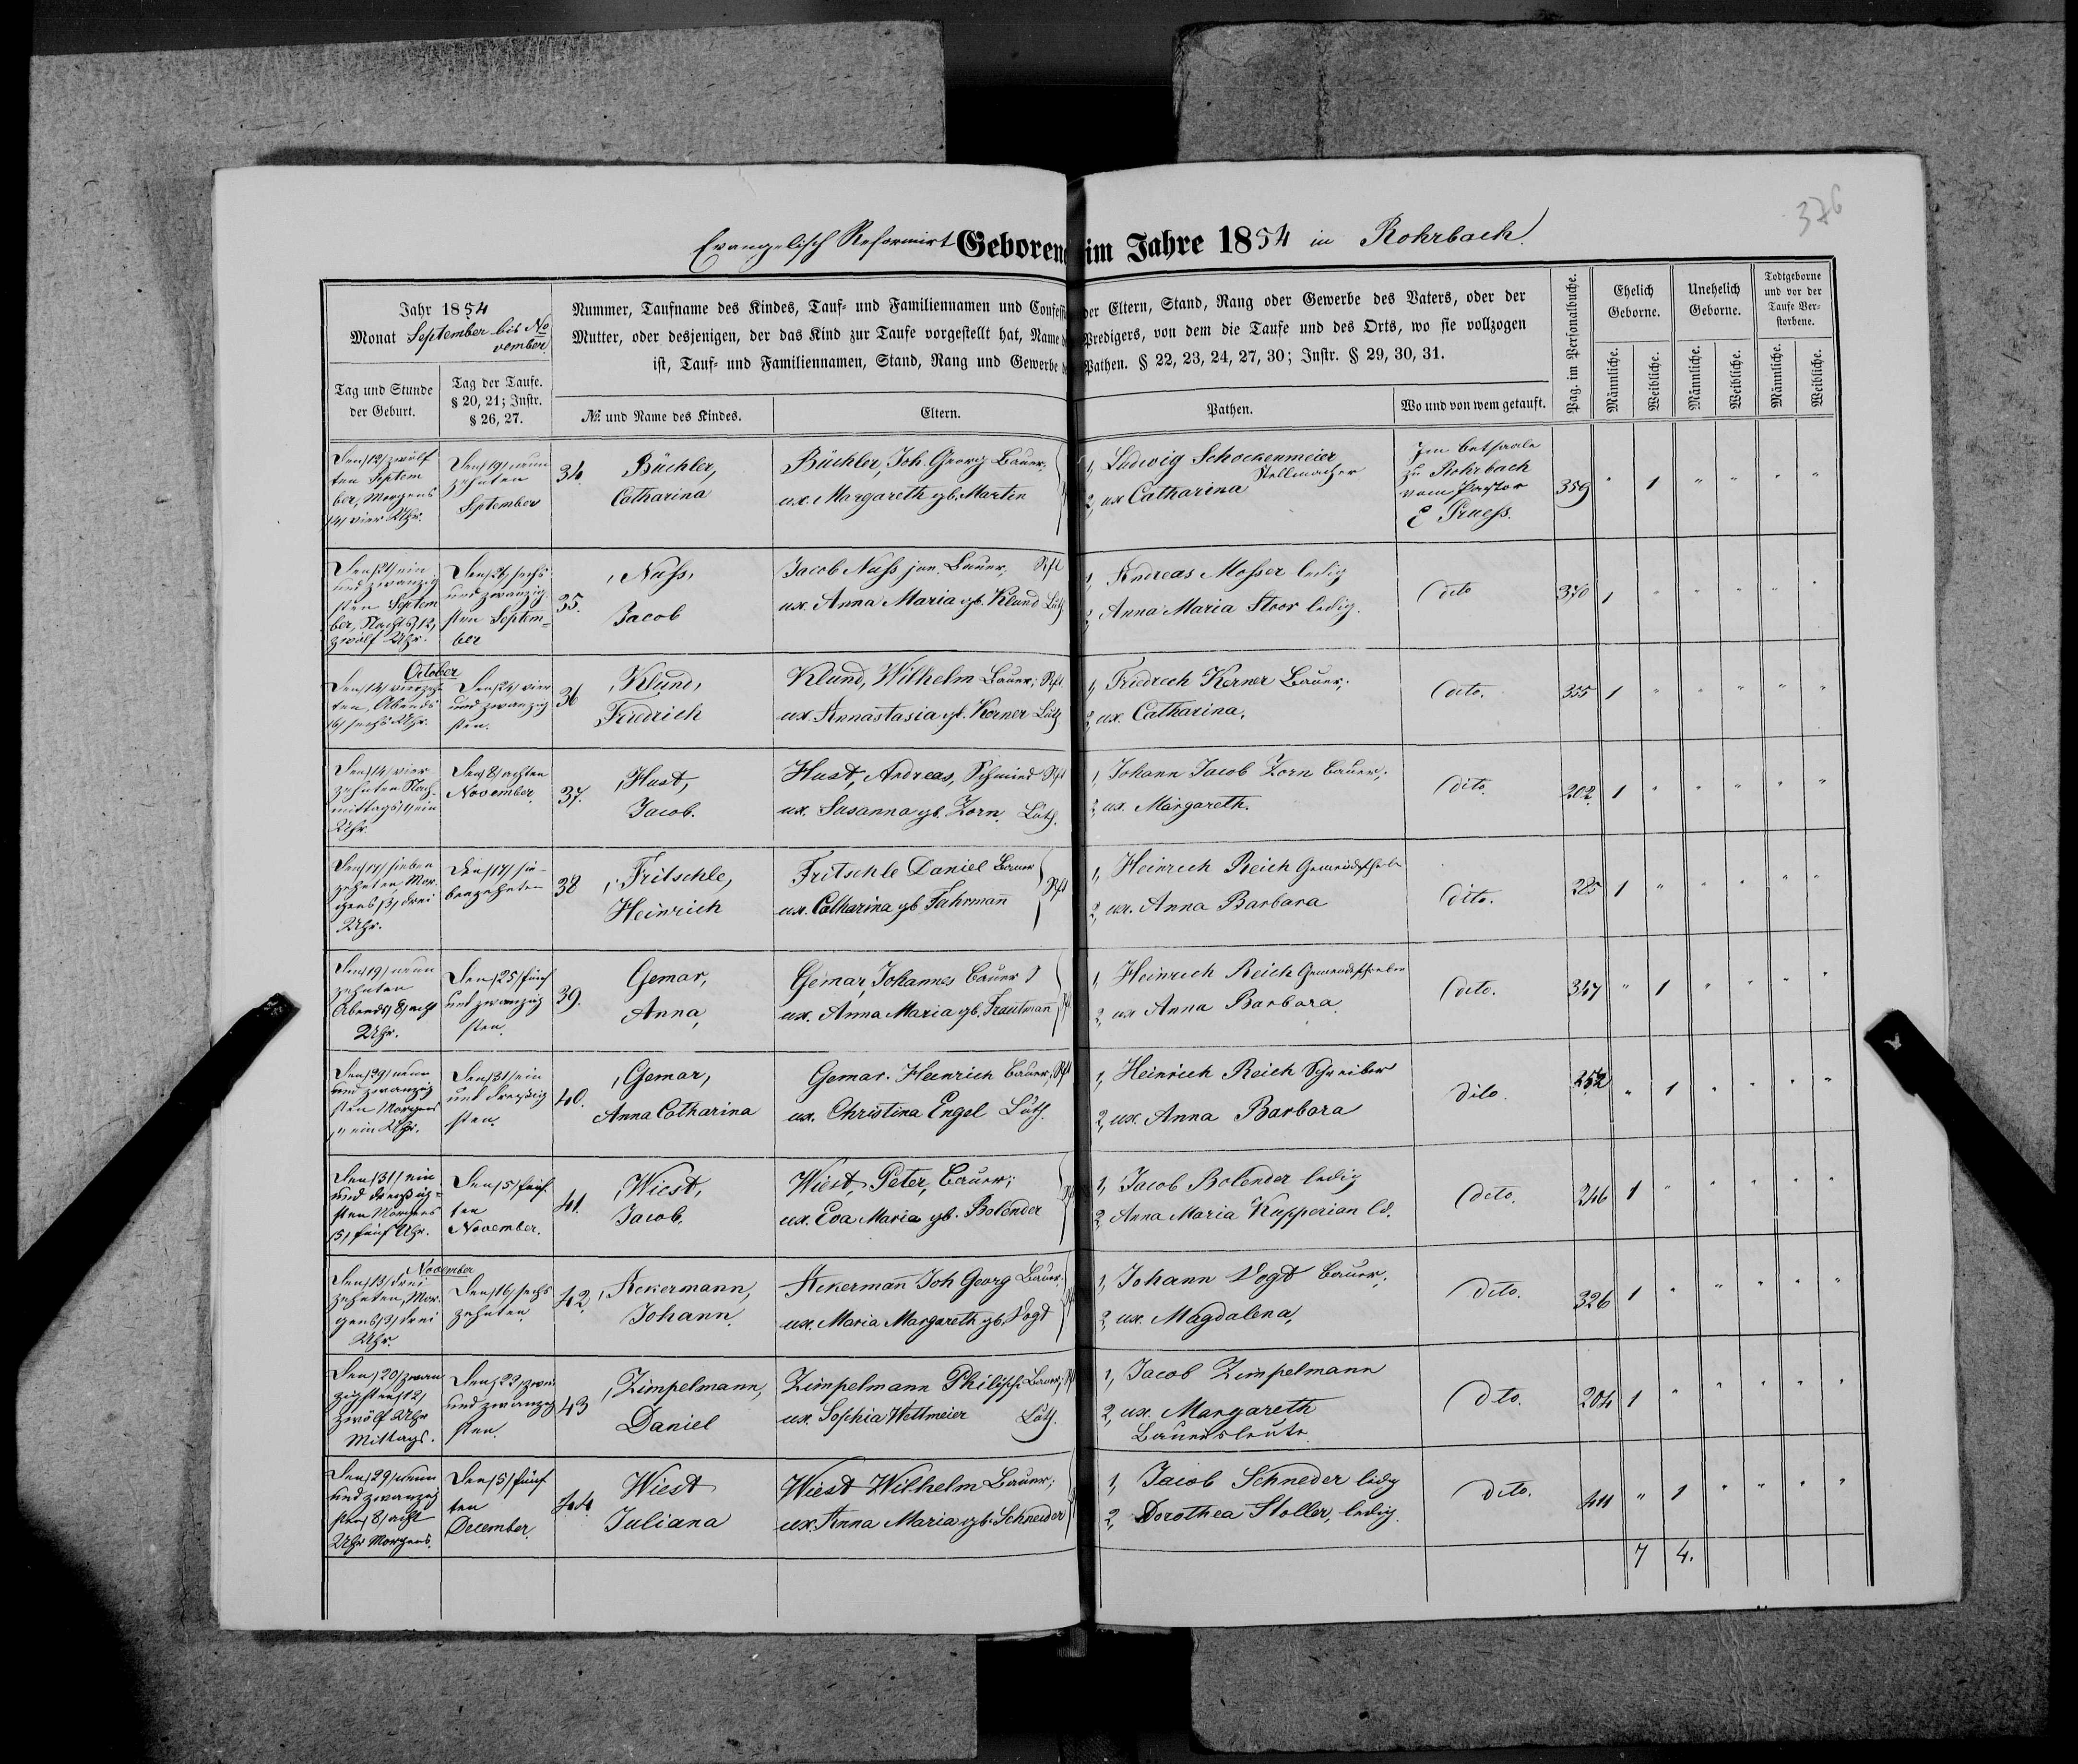 376
Evangelisch Reformirt Geborene im Jahre 1854 in Rohrbach.
Jahr 1854
Monat September bis No
vember.
Tag und Stunde
der Geburt.
Tag der Taufe.
§ 20, 21; Instr.
§ 26, 27.
Nummer, Taufname des Kindes, Tauf- und Familiennamen und Confess der Eltern, Stand, Rang oder Gewerbe des Vaters, oder der
Mutter, oder desjenigen, der das Kind zur Taufe vorgestellt hat, Name d Predigers, von dem die Taufe und des Orts, wo sie vollzogen
ist, Tauf- und Familiennamen, Stand, Rang und Gewerbe d Pathen. § 22, 23, 24, 27, 30; Instr. § 29, 30, 31.
№ und Name des Kindes.
Eltern.
Pathen.
Wo und von wem getauft.
Pag. im Personalbuche.
Ehelich
Geborne.
Unehelich
Geborne.
Todtgeborne
und vor der
Taufe Ver-
storbene.
Männliche.
Weibliche.
Männliche.
Weibliche.
Männliche.
Weibliche.
Den /12/ zwölf
ten Septem
ber, Morgens
/4/ vier Uhr.
Den /19/ neun
zehnten
September
34.
Büchler,
Catharina
Büchler, Joh. Georg Bauer,
ux. Margareth gb. Martin
1, Ludwig Schockenmeier
Stellmacher
2, ux Catharina
Im Betsaale
zu Rohrbach
vom Pastor
E Pruess.
359 " 1 " " " "
Den /21/ ein
und zwanzig
sten Septem
ber, Nachts /12/
zwölf Uhr.
Den /26/ sechs
und zwanzig
sten Septem=
ber
35.
Nuss,
Jacob
Jacob Nuss jun. Bauer, Rft
ux. Anna Maria gb. Klund Luth
1, Andreas Mosser ledig
2, Anna Maria Stoor ledig.
dito
370 1 " " " " "
October
Den /14/ vierzehn
ten, Abends
/6/ sechs Uhr.
Den /24/ vier
und zwanzig
sten.
36
Klund,
Friedrich
Klund, Wilhelm Bauer; Rft
ux. Annastasia gb. Kerner Luth
1, Friedrich Kerner Bauer;
2, ux. Catharina.
dito.
355 1 " " " " "
Den /14/ vier
zehnten Nach
mittags /1/ ein
Uhr.
Den /8/ achten
November.
37.
Hust,
Jacob.
Hust, Andreas, Schmied Rft
ux. Susanna gb. Zorn. Luth.
1, Johann Jacob Zorn Bauer;
2, ux. Margareth.
dito.
202 1 " " " " "
Den /17/ sieben
zehnten Mor
gens /3/ drei
Uhr.
Den /17/ sie-
benzehnten
38
Fritschle,
Heinrich
Fritschle Daniel Bauer
ux. Catharina gb Fahrmañ
Rft
1, Heinrich Reich
2, ux. Anna Barbara
dito.
285 1 " " " " "
Den /19/ neun
zehnten
Abends /8/ acht
Uhr.
Den /25/ fünf
und zwanzig
sten.
39.
Gemar,
Anna,
Gemar, Johannes Bauer
ux. Anna Maria gb. Trautmañ
1, Heinrich Reich Gemeindschreiber
2, ux Anna Barbara.
dito.
347 " 1 " " " "
Den /29/ neun
und zwanzig
sten Morgens
/1/ ein Uhr.
Den /31/ ein
und dreißig
sten.
40.
Gemar,
Anna Catharina
Gemar. Heinrich Bauer, Rft
ux. Christina Engel Luth.
1, Heinrich Reich Schreiber
2, ux. Anna Barbara
dito.
252 " 1 " " " "
Den /31/ ein
und dreißig=
sten Morgens
/5/ fünf Uhr.
Den /5/ fünf
ten
November.
41.
Wiest,
Jacob.
Wiest, Peter, Bauer;
ux. Eva Maria gb. Bolender
1, Jacob Bolender ledig
2, Anna Maria Kupperian ld.
dito.
246 1 " " " " "
November
Den /13/ drei
zehnten, Mor
gens /3/ drei
Uhr.
Den /16/ sechs
zehnten.
42,
Ackermann,
Johann.
Ackermañ Joh Georg Bauer.
ux. Maria Margareth gb. Vogt
1, Johann Vogt Bauer;
2, ux. Magdalena,
dito.
326 1 " " " " "
Den /20/ zwan
zigsten /12/
zwölf Uhr
Mittags.
Den /22/ zwei
und zwanzig
sten.
43
Zimpelmann,
Daniel
Zimpelmann Philipp Bauer;
ux. Sophia Wettmeier Luth.
1, Jacob Zimpelmann
2, ux. Margareth
Bauersleute.
dito.
204 1 " " " " "
Den /29/ neun
und zwanzig
sten /8/ acht
Uhr Morgens.
Den /5/ fünf
ten
December.
44.
Wiest
Juliana
Wiest Wilhelm Bauer;
ux. Anna Maria gb. Schneider
1, Jacob Schneder ledig
2, Dorothea Stoller, ledig.
dito.
411 " 1 " " " "
7 4.